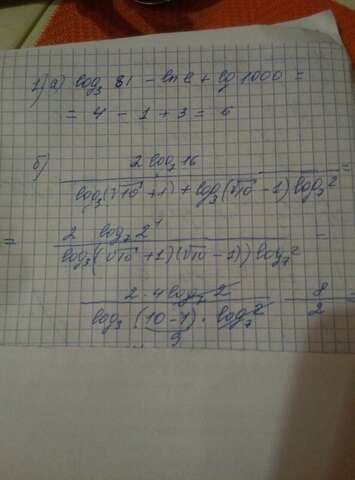 1) а) log₃ 81 - ln e + lg 1000 =
= 4 - 1 + 3 = 6
б) 2 log₇ 16
log₃(√10 + 1) + log₃(√10 - 1) log₇ 2 =
= 2 log₇ 2⁴
log₃(√10 + 1)(√10 - 1)) log₇ 2
2 · 4 log₇ 2
log₃ (10 - 1) · log₇ 2
9
8
2